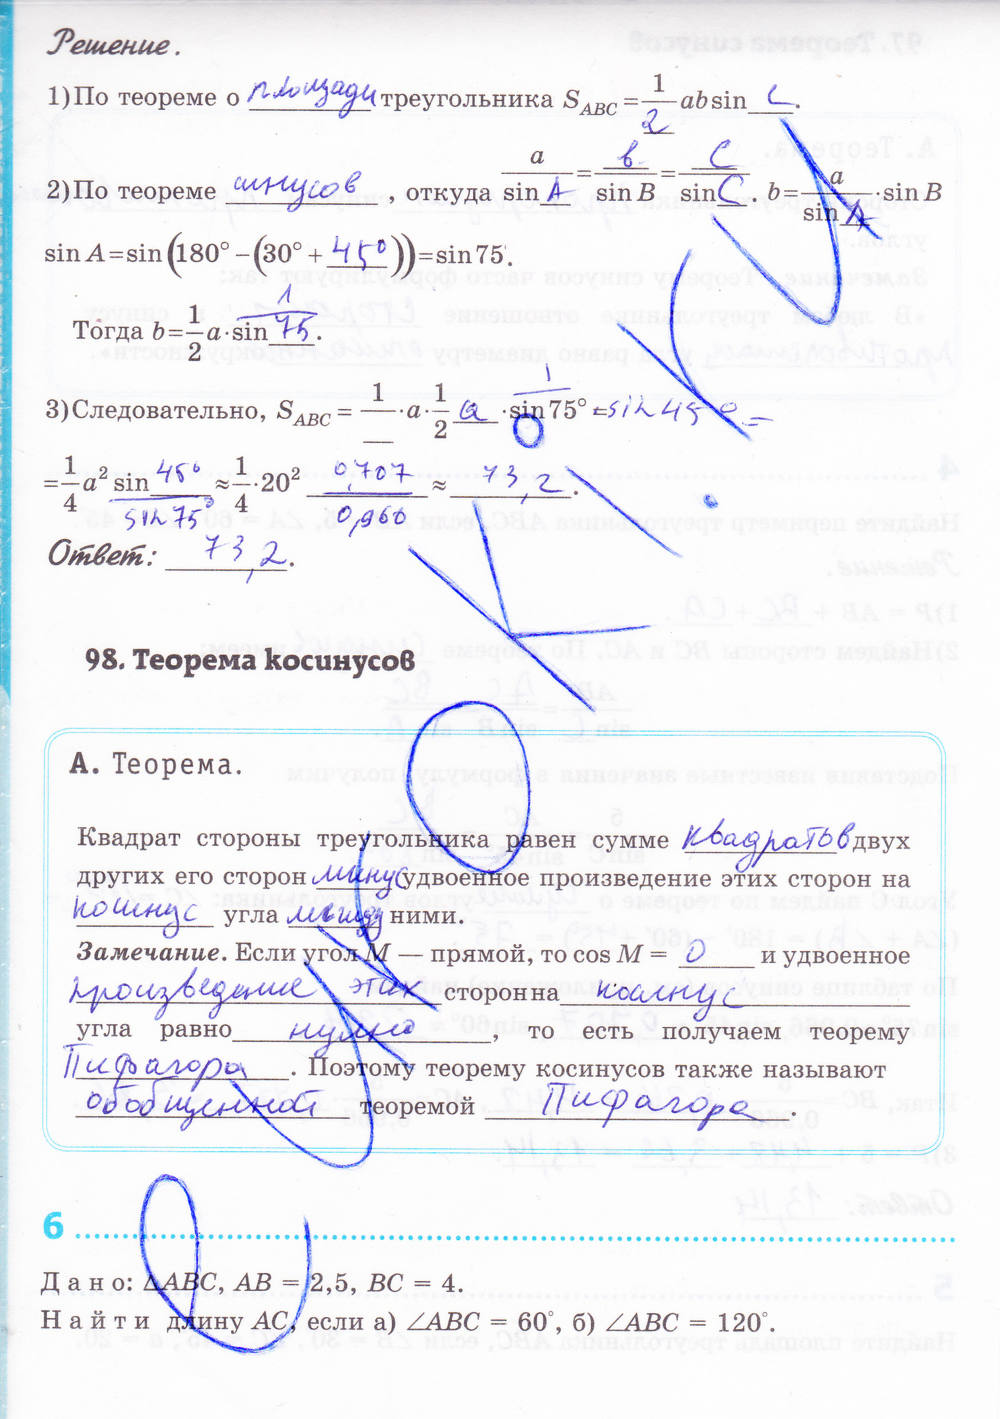 Решение.
1) По теореме о площади треугольника S_ABC = 1/2 ab sin C.
2) По теореме синусов, откуда a/sin A = b/sin B = c/sin C. b = a/sin A · sin B
sin A = sin (180° − (30° + 45°)) = sin 75°.
Тогда b = 1/2 a · 1/sin 75.
3) Следовательно, S_ABC = 1/ · a · 1/2 a · 1/sin 75° · sin 45° =
= 1/4 a² sin 45°/sin 75° ≈ 1/4 · 20² 0,707/0,966 ≈ 73,2.
Ответ: 73,2.
98. Теорема косинусов
А. Теорема.
Квадрат стороны треугольника равен сумме квадратов двух
других его сторон минус удвоенное произведение этих сторон на
косинус угла между ними.
Замечание. Если угол M — прямой, то cos M = 0 и удвоенное
произведение этих сторон на косинус
угла равно нулю, то есть получаем теорему
Пифагора. Поэтому теорему косинусов также называют
обобщенной теоремой Пифагора.
6
Дано: △ABC, AB = 2,5, BC = 4.
Найти длину AC, если а) ∠ABC = 60°, б) ∠ABC = 120°.